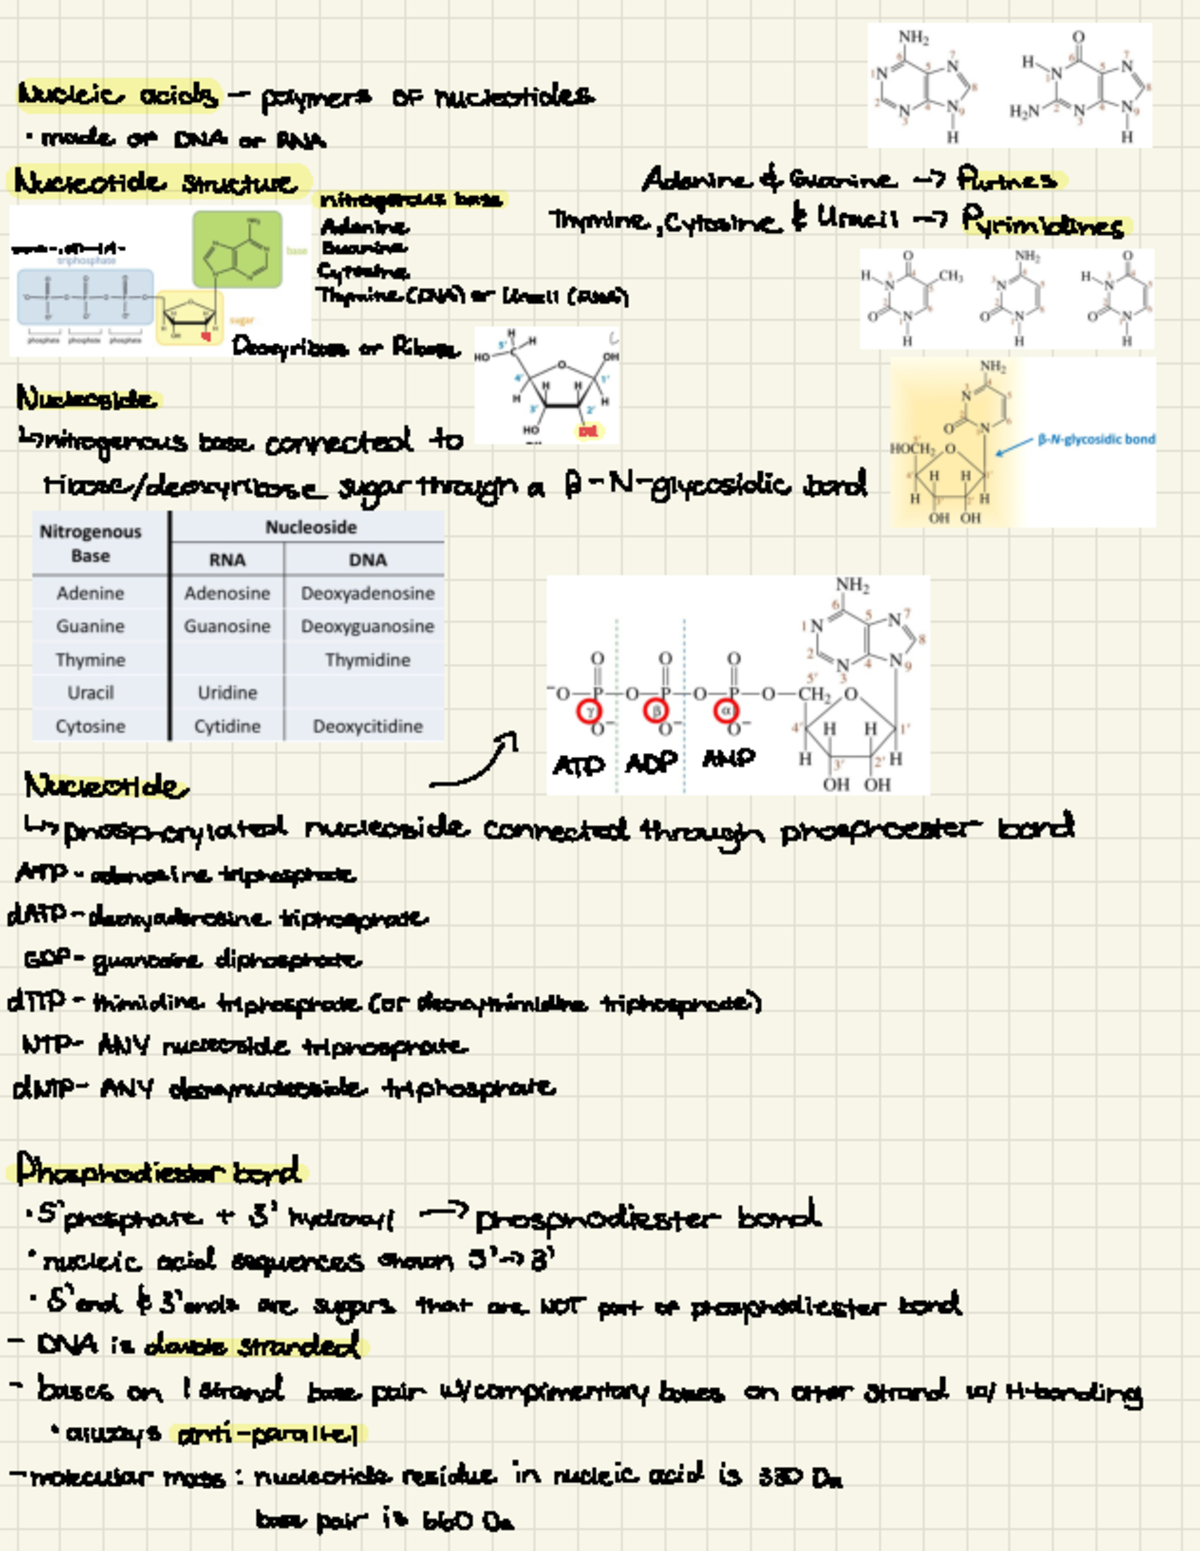 Nucleic acids - polymers of nucleotides
• made of DNA or RNA
Nucleotide Structure
nitrogenous base
Adenine
Guanine
Cytosine
Thymine (DNA) or Uracil (RNA)
triphosphate
base
sugar
phosphate phosphate phosphate
Deoxyribose or Ribose
Adanine & Guanine -> Purines
Thymine, Cytosine & Uracil -> Pyrimidines
Nucleoside
↳nitrogenous base connected to
ribose/deoxyribose sugar through a β-N-glycosidic bond
β-N-glycosidic bond
Nitrogenous Base | Nucleoside
RNA | DNA
Adenine | Adenosine | Deoxyadenosine
Guanine | Guanosine | Deoxyguanosine
Thymine | Thymidine
Uracil | Uridine
Cytosine | Cytidine | Deoxycitidine
γ β α
ATP ADP AMP
Nucleotide
↳phosphorylated nucleoside connected through phosphoester bond
ATP - adenosine triphosphate
dATP - deoxyadenosine triphosphate
GDP - guanosine diphosphate
dTTP - thimidine triphosphate (or deoxythimidine triphosphate)
NTP - ANY nucleoside triphosphate
dNTP - ANY deoxynucleoside triphosphate
Phosphodiester bond
• 5' phosphate + 3' hydroxyl -> phosphodiester bond
• nucleic acid sequences shown 5' -> 3'
• 5' end & 3' ends are sugars that are NOT part of phosphodiester bond
- DNA is double stranded
- bases on 1 strand base pair w/ complimentary bases on other strand w/ H-bonding
• always anti-parallel
- molecular mass: nucleotide residue in nucleic acid is 330 Da
base pair is 660 Da